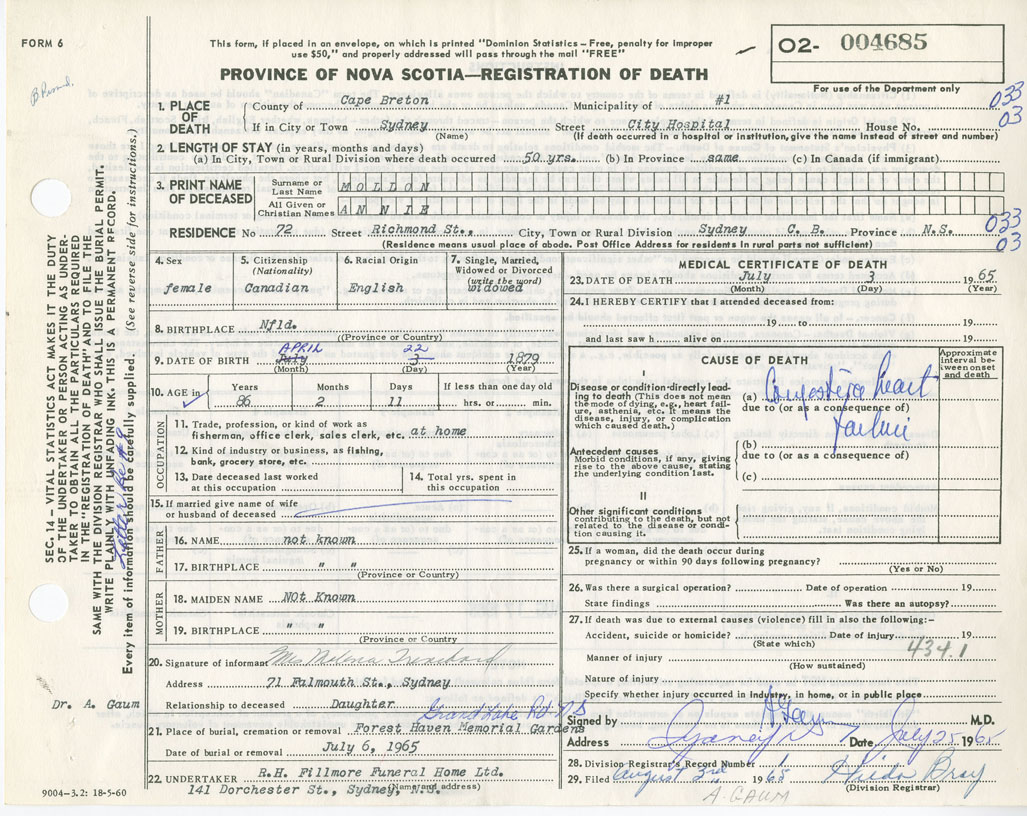 FORM 6
This form, if placed in an envelope, on which is printed "Dominion Statistics – Free, penalty for improper
use $50," and properly addressed will pass through the mail "FREE"
02- 004685
PROVINCE OF NOVA SCOTIA—REGISTRATION OF DEATH
For use of the Department only
033
03
1. PLACE OF DEATH
County of Cape Breton Municipality of #1
If in City or Town Sydney Street City Hospital House No.
(Name) (If death occurred in a hospital or institution, give the name instead of street and number)
2. LENGTH OF STAY (in years, months and days)
(a) In City, Town or Rural Division where death occurred 50 yrs. (b) In Province same (c) In Canada (if immigrant)
3. PRINT NAME OF DECEASED
Surname or Last Name MOLLON
All Given or Christian Names ANNIE
RESIDENCE No 72 Street Richmond St., City, Town or Rural Division Sydney C. B. Province N.S.
(Residence means usual place of abode. Post Office Address for residents in rural parts not sufficient)
033
03
4. Sex
female
5. Citizenship (Nationality)
Canadian
6. Racial Origin
English
7. Single, Married, Widowed or Divorced (write the word)
widowed
8. BIRTHPLACE Nfld.
(Province or Country)
9. DATE OF BIRTH July APRIL 3 22 1879
(Month) (Day) (Year)
10. AGE in Years Months Days If less than one day old
86 2 11 hrs. or min.
OCCUPATION
11. Trade, profession, or kind of work as
fisherman, office clerk, sales clerk, etc. at home
12. Kind of industry or business, as fishing,
bank, grocery store, etc.
13. Date deceased last worked at this occupation
14. Total yrs. spent in this occupation
15. If married give name of wife
or husband of deceased
FATHER
16. NAME not known
17. BIRTHPLACE " "
(Province or Country)
MOTHER
18. MAIDEN NAME NOt Known
19. BIRTHPLACE " "
(Province or Country)
20. Signature of informant Mrs
Address 71 Falmouth St., Sydney
Relationship to deceased Daughter
Grand Lake Rd NS
21. Place of burial, cremation or removal Forest Haven Memorial Gardens
Date of burial or removal July 6, 1965
22. UNDERTAKER R.H. Fillmore Funeral Home Ltd.
141 Dorchester St., Sydney, N.S.
(Name and address)
9004-3.2: 18-5-60
MEDICAL CERTIFICATE OF DEATH
23. DATE OF DEATH July 3 1965
(Month) (Day) (Year)
24. I HEREBY CERTIFY that I attended deceased from:
19 to 19
and last saw h alive on 19
CAUSE OF DEATH
Approximate interval between onset and death
I
Disease or condition directly leading to death (This does not
mean the mode of dying, e.g., heart failure, asthenia, etc. It means the
disease, injury, or complication
which caused death.)
(a) Congestive heart
due to (or as a consequence of)
failure
(b)
due to (or as a consequence of)
(c)
Antecedent causes
Morbid conditions, if any, giving
rise to the above cause, stating
the underlying condition last.
II
Other significant conditions
contributing to the death, but not
related to the disease or condition causing it.
25. If a woman, did the death occur during
pregnancy or within 90 days following pregnancy?
(Yes or No)
26. Was there a surgical operation? Date of operation 19
State findings Was there an autopsy?
27. If death was due to external causes (violence) fill in also the following:–
Accident, suicide or homicide? Date of injury 19
(State which)
434.1
Manner of injury
(How sustained)
Nature of injury
Specify whether injury occurred in industry, in home, or in public place
Signed by A Gaum M.D.
Address Sydney NS Date July 25 1965
28. Division Registrar's Record Number 1
29. Filed August 3rd 1965 Hilda Bray
(Division Registrar)
A. GAUM
SEC. 14 – VITAL STATISTICS ACT MAKES IT THE DUTY
OF THE UNDERTAKER OR PERSON ACTING AS UNDER-
TAKER TO OBTAIN ALL THE PARTICULARS REQUIRED
IN THE "REGISTRATION OF DEATH" AND TO FILE THE
SAME WITH THE DIVISION REGISTRAR, WHO SHALL ISSUE THE BURIAL PERMIT.
WRITE PLAINLY WITH UNFADING INK–THIS IS A PERMANENT RECORD.
Every item of information should be carefully supplied. (See reverse side for instructions.)
Dr. A. Gaum